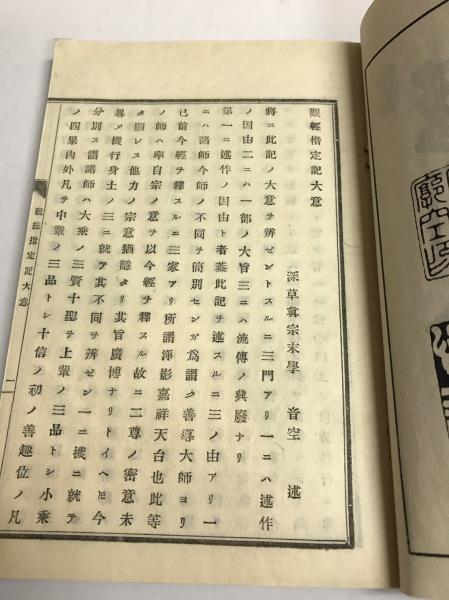 觀經揩定記大意
深草眞宗末學 音空 述
將ニ此記ノ大意ヲ辨ゼントスルニ三門アリ一ニハ述作
ノ因由二ニハ一部ノ大旨三ニハ流傳ノ興廢ナリ
第一ニ述作ノ因由ト者蓋此記ヲ述スルニ三ノ由アリ一
ニハ諸師今師ノ不同ヲ簡別センガ爲謂ク善導大師ヨリ
已前今經ヲ釋スルニ三家アリ所謂淨影嘉祥天台也此等
ノ師ハ率自宗ノ意ヲ以今經ヲ釋スル故ニ二尊ノ密意未
タ顯レス他力ノ宗意猶隱タリ其旨廣博ナリトイヘ𪜈今
畧〆機行身土ノ三ニ就テ其不同ヲ辨ゼン一ニ機ニ就テ
分別ス謂諸師ハ大乘ノ三賢十聖ヲ上輩ノ三品トシ小乘
ノ四果內外凡ヲ中輩ノ三品トシ十信ノ初ノ善趣位ノ凡
觀經揩定記大意
一